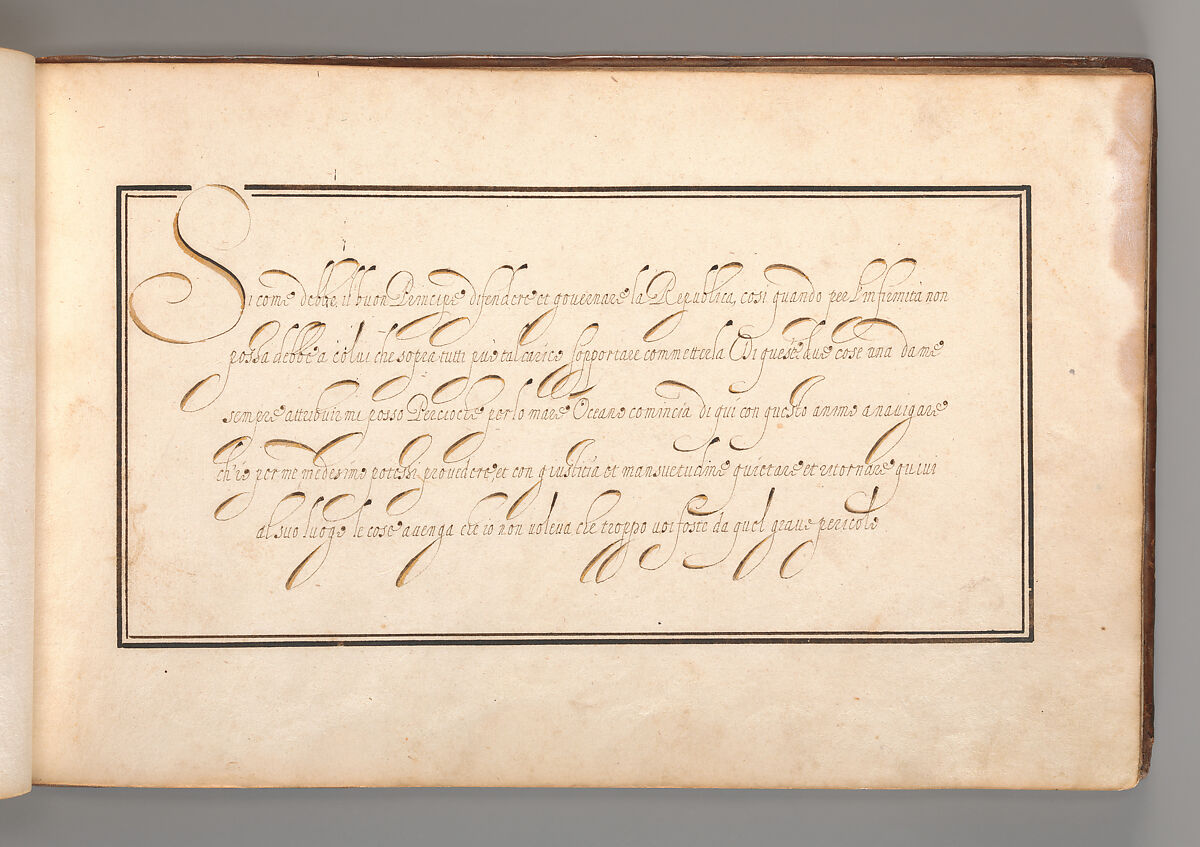 Si come debbe, il buon Principe difendere et governare la Republica, cosi quando per l'infirmità non
possa debbe a colui che sopra tutti può tal carico sopportare commetterla Di queste due cose una da me
sempre attribuirmi posso Percioche per lo mare Oceano comincia di qui con questo animo a navigare
ch'io per me medesimo potessi provedere, et con giustitia et mansuetudine quietare et ritornare quivi
al suo luogo le cose avenga che io non voleva che troppo voi foste da quel grave pericolo